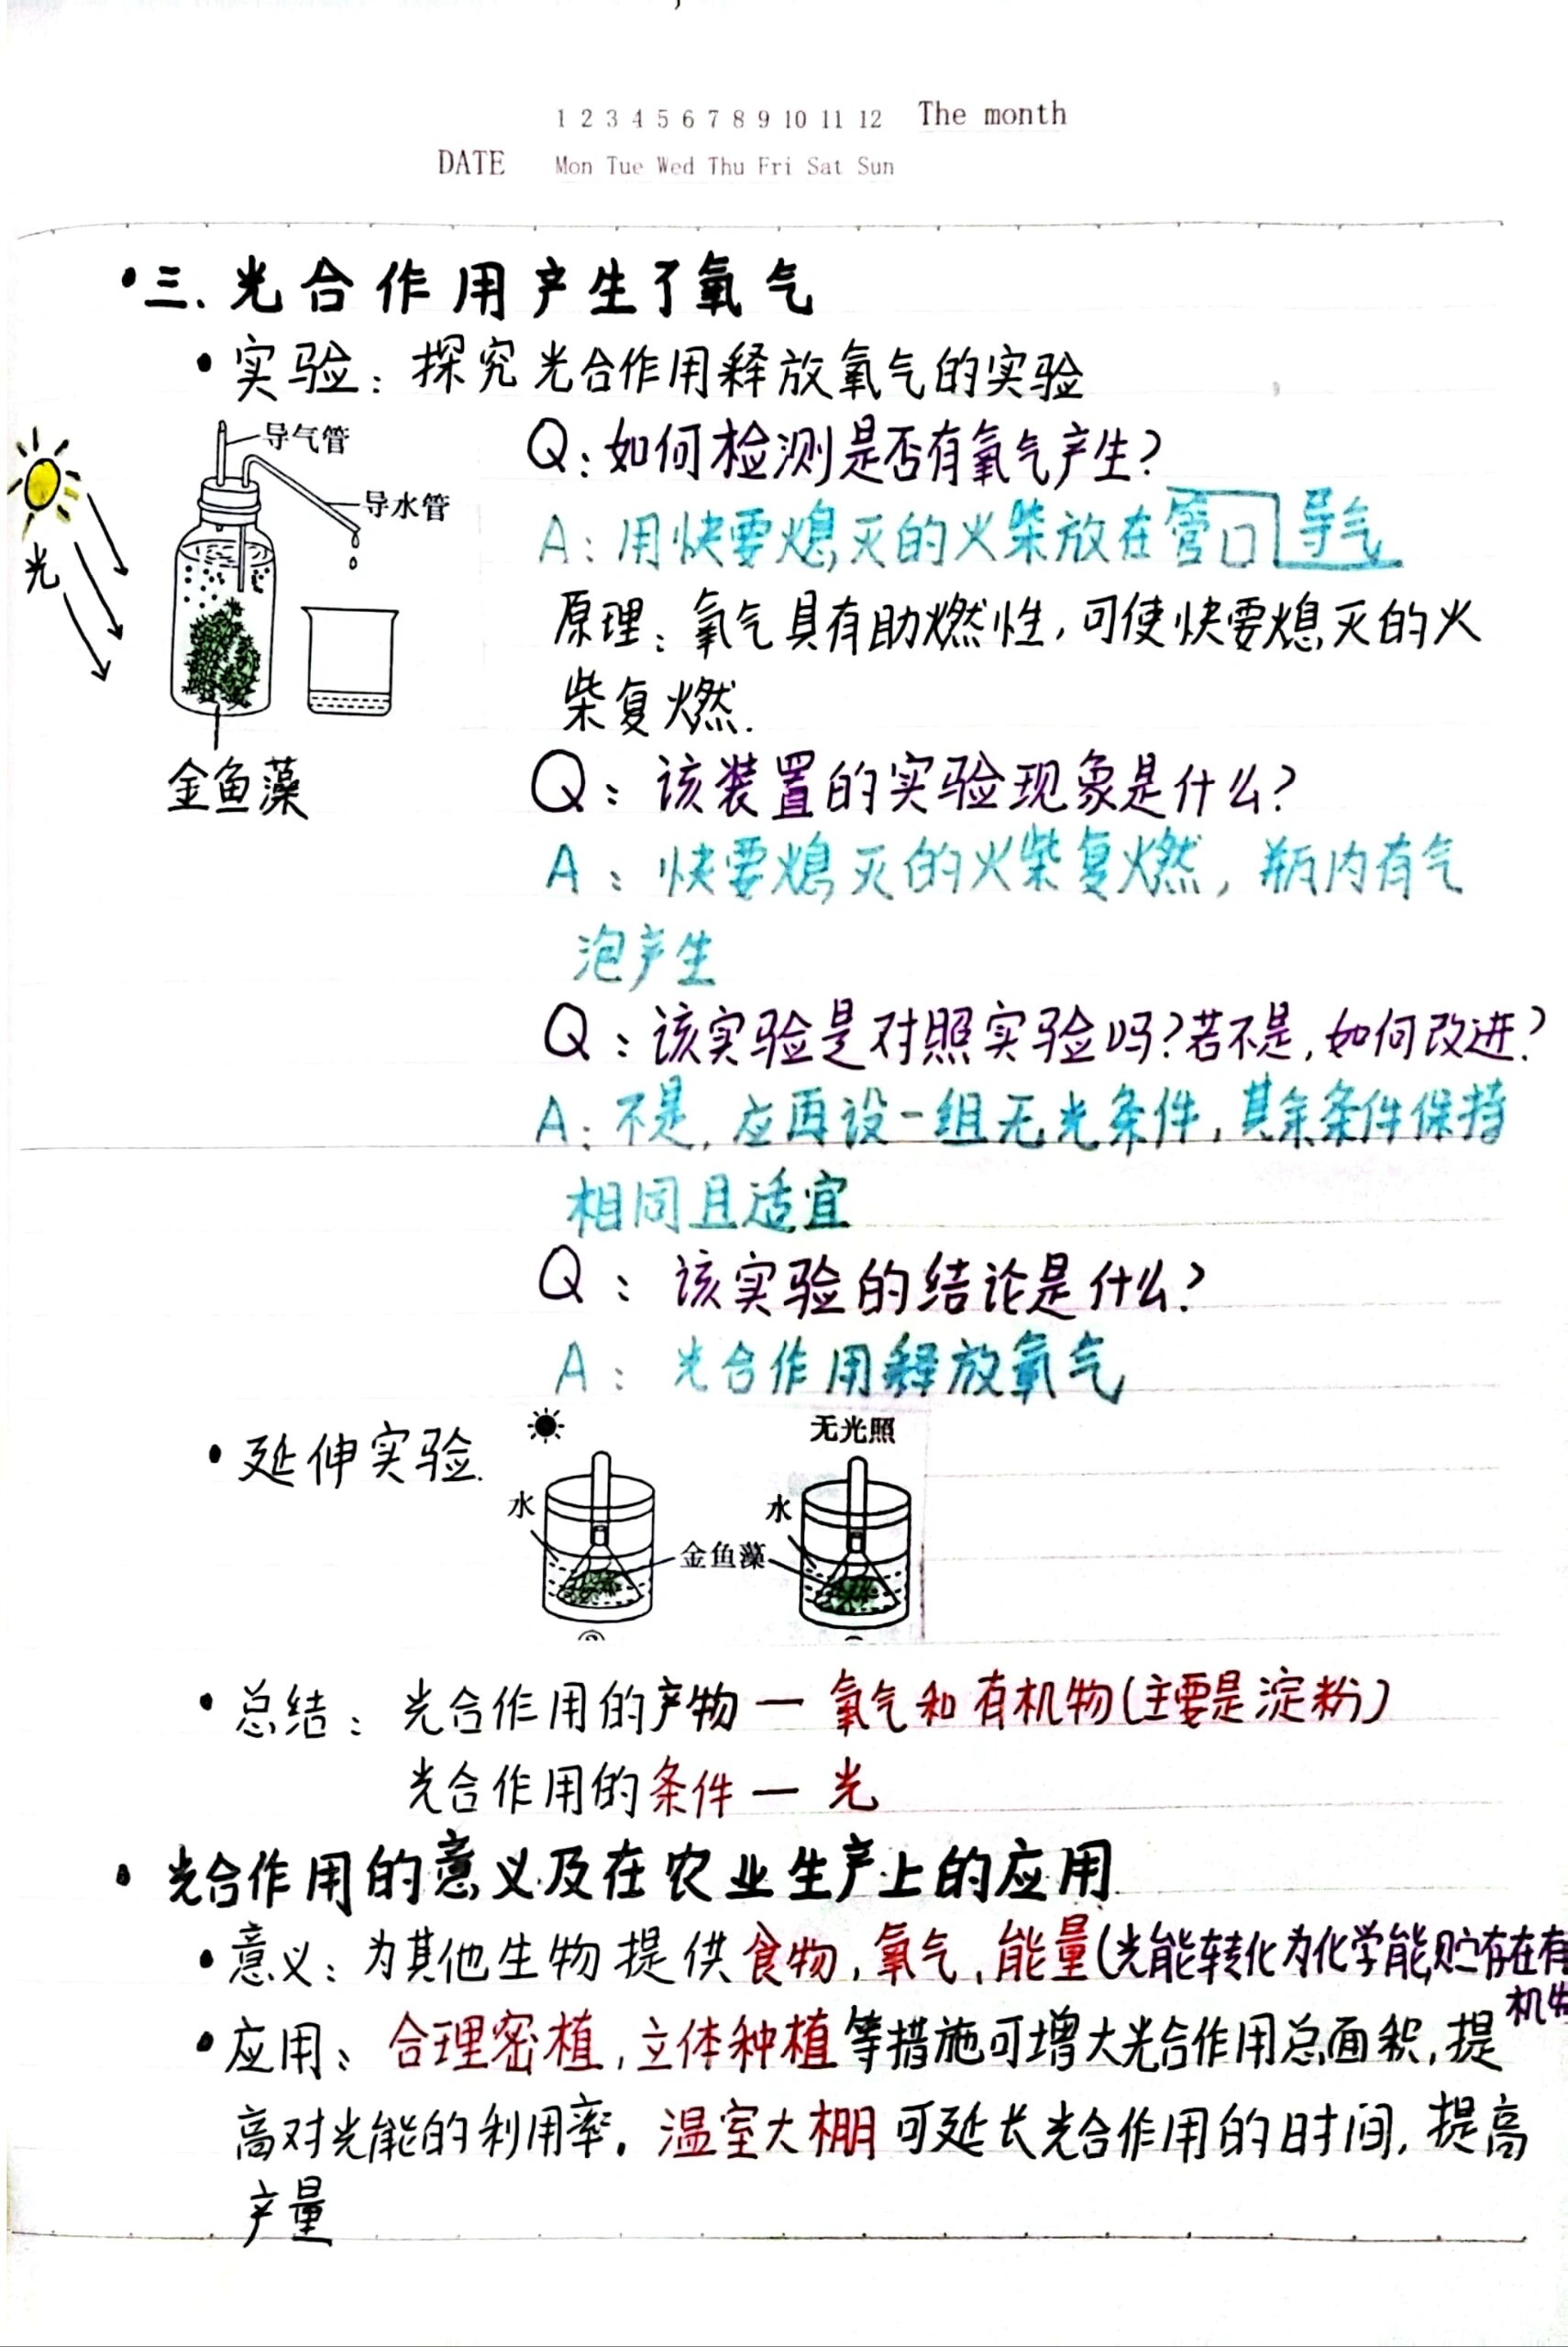 1 2 3 4 5 6 7 8 9 10 11 12 The month
DATE Mon Tue Wed Thu Fri Sat Sun
·三、光合作用产生了氧气
·实验：探究光合作用释放氧气的实验
导气管
导水管
光
金鱼藻
Q：如何检测是否有氧气产生？
A：用快要熄灭的火柴放在管口导气
原理：氧气具有助燃性，可使快要熄灭的火
柴复燃.
Q：该装置的实验现象是什么？
A：快要熄灭的火柴复燃，瓶内有气
泡产生
Q：该实验是对照实验吗？若不是，如何改进？
A：不是，应再设一组无光条件，其余条件保持
相同且适宜
Q：该实验的结论是什么？
A：光合作用释放氧气
·延伸实验.
无光照
水
水
金鱼藻
·总结：光合作用的产物—氧气和有机物(主要是淀粉)
光合作用的条件—光
·光合作用的意义及在农业生产上的应用
·意义：为其他生物提供食物，氧气，能量(光能转化为化学能,贮存在有
机
·应用：合理密植，立体种植等措施可增大光合作用总面积，提
高对光能的利用率。温室大棚可延长光合作用的时间，提高
产量